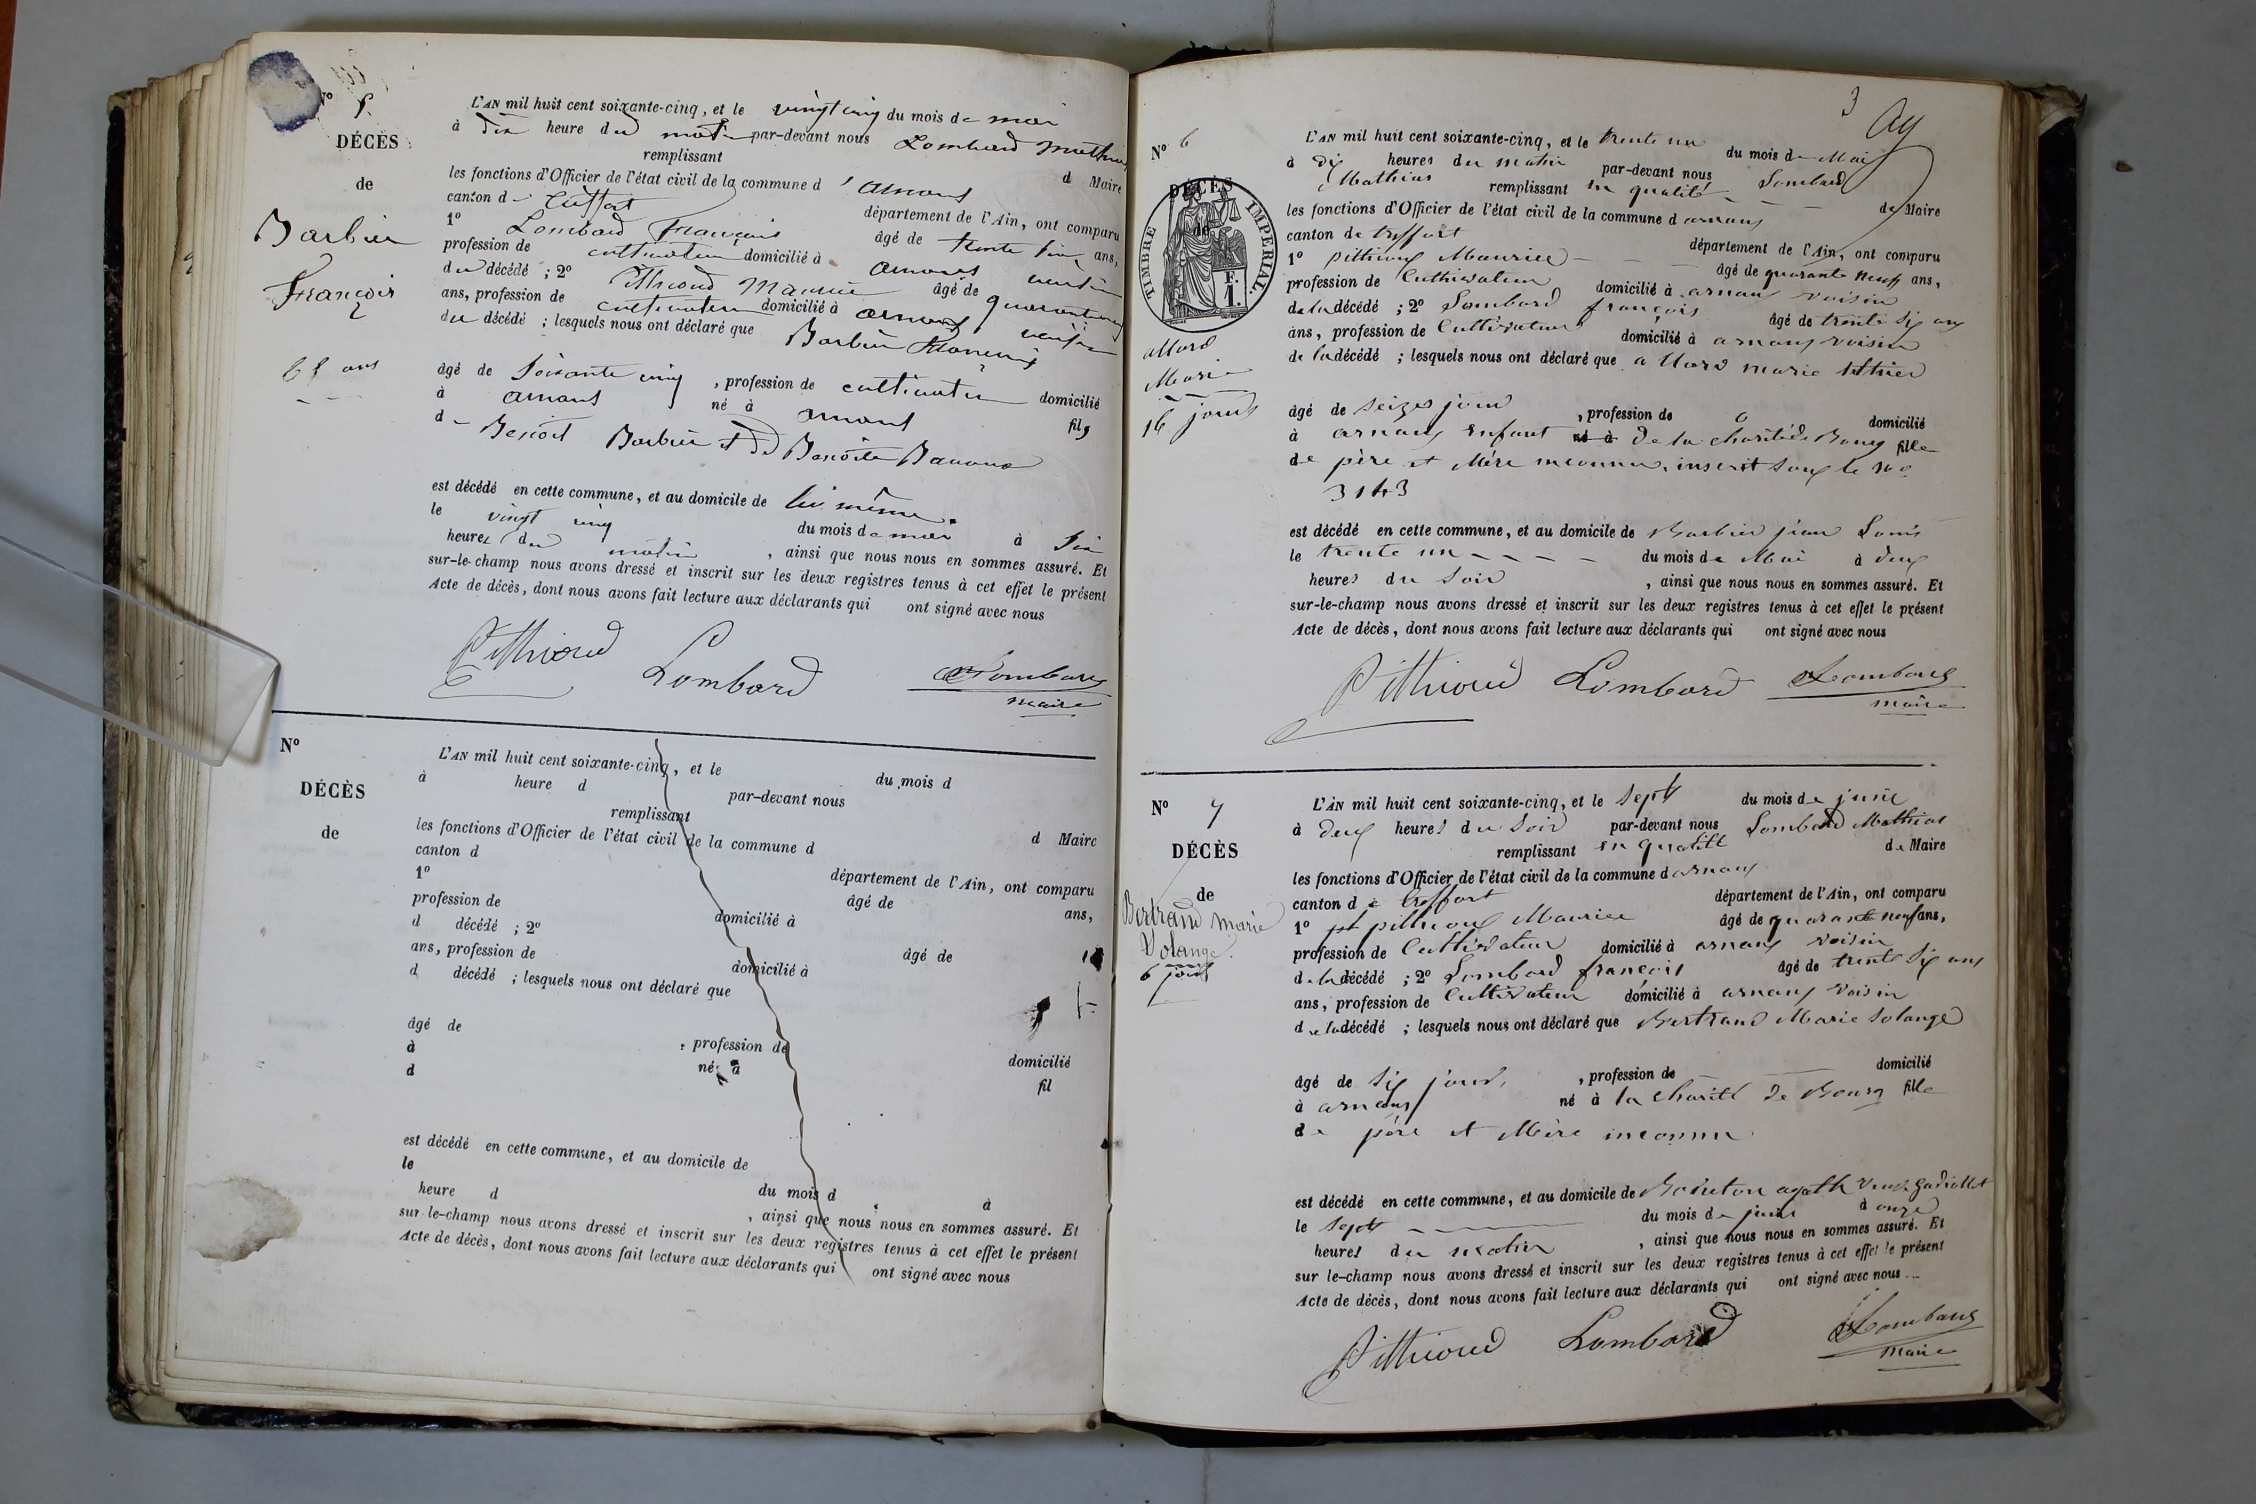 N° 5.
DÉCÈS
de
Barbier
François
65 ans
L'AN mil huit cent soixante-cinq, et le vingt cinq du mois de mai
à dix heure du matin par-devant nous Lombard Mathieu
remplissant d Maire
les fonctions d'Officier de l'état civil de la commune d'arnans
canton de treffort département de l'Ain, ont comparu
1° Lombard François âgé de trente six ans,
profession de cultivateur domicilié à arnans voisin
du décédé ; 2° Pithioud Maurice âgé de quarante neuf
ans, profession de cultivateur domicilié à arnans voisin
du décédé ; lesquels nous ont déclaré que Barbier François
âgé de soixante cinq , profession de cultivateur domicilié
à arnans né à arnans fils
de Benoit Barbier et de Benoite
est décédé en cette commune, et au domicile de lui même.
le vingt cinq du mois de mai à six
heures du matin , ainsi que nous nous en sommes assuré. Et
sur-le-champ nous avons dressé et inscrit sur les deux registres tenus à cet effet le présent
Acte de décès, dont nous avons fait lecture aux déclarants qui ont signé avec nous
Pithioud Lombard Lombard
maire
N°
DÉCÈS
de
L'AN mil huit cent soixante-cinq, et le du mois d
à heure d par-devant nous
remplissant d Maire
les fonctions d'Officier de l'état civil de la commune d
canton d département de l'Ain, ont comparu
1° âgé de ans,
profession de domicilié à
d décédé ; 2° âgé de
ans, profession de domicilié à
d décédé ; lesquels nous ont déclaré que
âgé de , profession de domicilié
à né à fil
d
est décédé en cette commune, et au domicile de
le du mois d à
heure d , ainsi que nous nous en sommes assuré. Et
sur-le-champ nous avons dressé et inscrit sur les deux registres tenus à cet effet le présent
Acte de décès, dont nous avons fait lecture aux déclarants qui ont signé avec nous
3
N° 6
DÉCÈS
de
TIMBRE IMPÉRIAL
F.
1.
allard
Marie
16 jours
L'AN mil huit cent soixante-cinq, et le trente un du mois de Mai
à dix heures du matin par-devant nous Lombard
Mathias remplissant en qualité de Maire
les fonctions d'Officier de l'état civil de la commune d arnans
canton de treffort département de l'Ain, ont comparu
1° pithioux Maurice âgé de quarante neuf ans,
profession de Cultivateur domicilié à arnans voisin
de la décédé ; 2° Lombard françois âgé de trente six ans
ans, profession de Cultivateur domicilié à arnans voisin
de la décédé ; lesquels nous ont déclaré que allard marie
âgé de seizes jour , profession de 0 domicilié
à arnans enfant né à de la charité de Bourg fille
de père et Mère inconnu. inscrit sous le No
3143
est décédé en cette commune, et au domicile de Barbier jean Louis
le trente un du mois de Mai à deux
heures du soir , ainsi que nous nous en sommes assuré. Et
sur-le-champ nous avons dressé et inscrit sur les deux registres tenus à cet effet le présent
Acte de décès, dont nous avons fait lecture aux déclarants qui ont signé avec nous
Pithioud Lombard Lombard
maire
N° 7
DÉCÈS
de
Bertrand Marie
Solange.
6 jours
L'AN mil huit cent soixante-cinq, et le sept du mois de juin
à deux heures du soir par-devant nous Lombard Mathias
remplissant en qualité de Maire
les fonctions d'Officier de l'état civil de la commune d arnans
canton de treffort département de l'Ain, ont comparu
1° pithioux Maurice âgé de quarante neuf ans,
profession de Cultivateur domicilié à arnans voisin
de la décédé ; 2° Lombard françois âgé de trente six ans
ans, profession de Cultivateur domicilié à arnans voisin
de la décédé ; lesquels nous ont déclaré que Bertrand Marie Solange
âgé de six jours, , profession de domicilié
à arnans né à la charité de Bourg fille
de père et Mère inconnu
est décédé en cette commune, et au domicile de agath
le sept du mois de juin à onze
heures du matin , ainsi que nous nous en sommes assuré. Et
sur le-champ nous avons dressé et inscrit sur les deux registres tenus à cet effet le présent
Acte de décès, dont nous avons fait lecture aux déclarants qui ont signé avec nous
Pithioud Lombard Lombard
maire